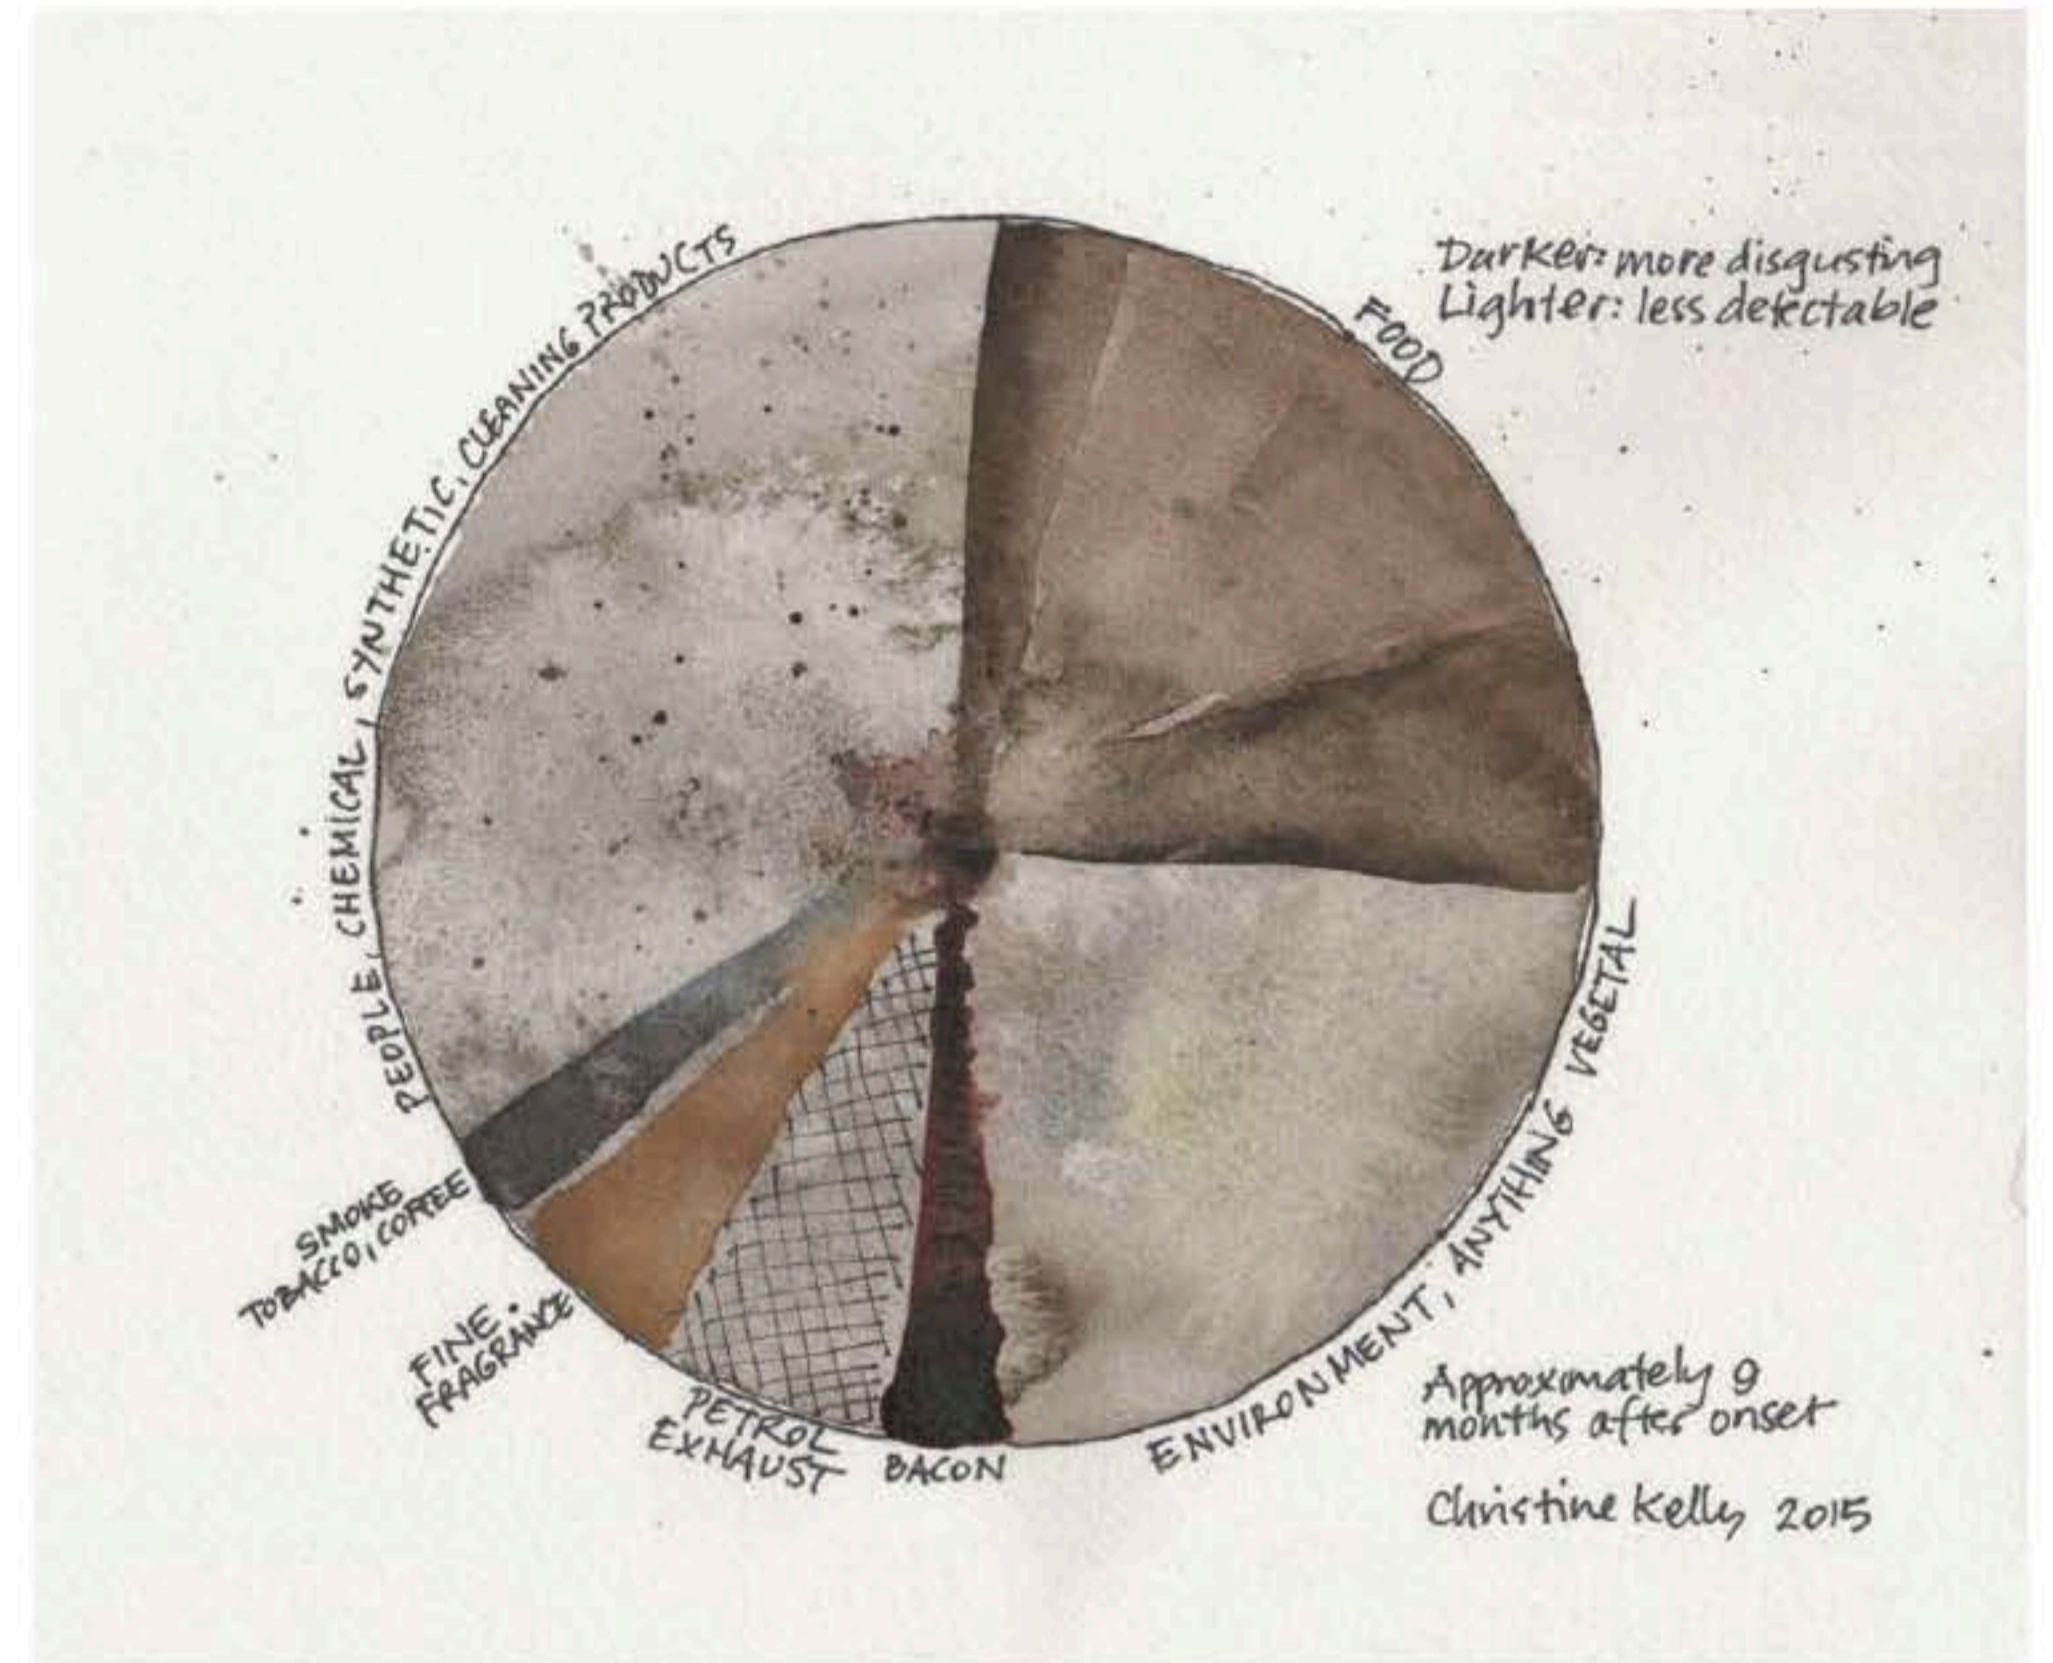 Darker: more disgusting
Lighter: less detectable
FOOD
PEOPLE, CHEMICAL, SYNTHETIC, CLEANING PRODUCTS
ENVIRONMENT, ANYTHING VEGETAL
SMOKE
TOBACCO, COFFEE
FINE
FRAGRANCE
PETROL
EXHAUST
BACON
Approximately 9
months after onset
Christine Kelly 2015